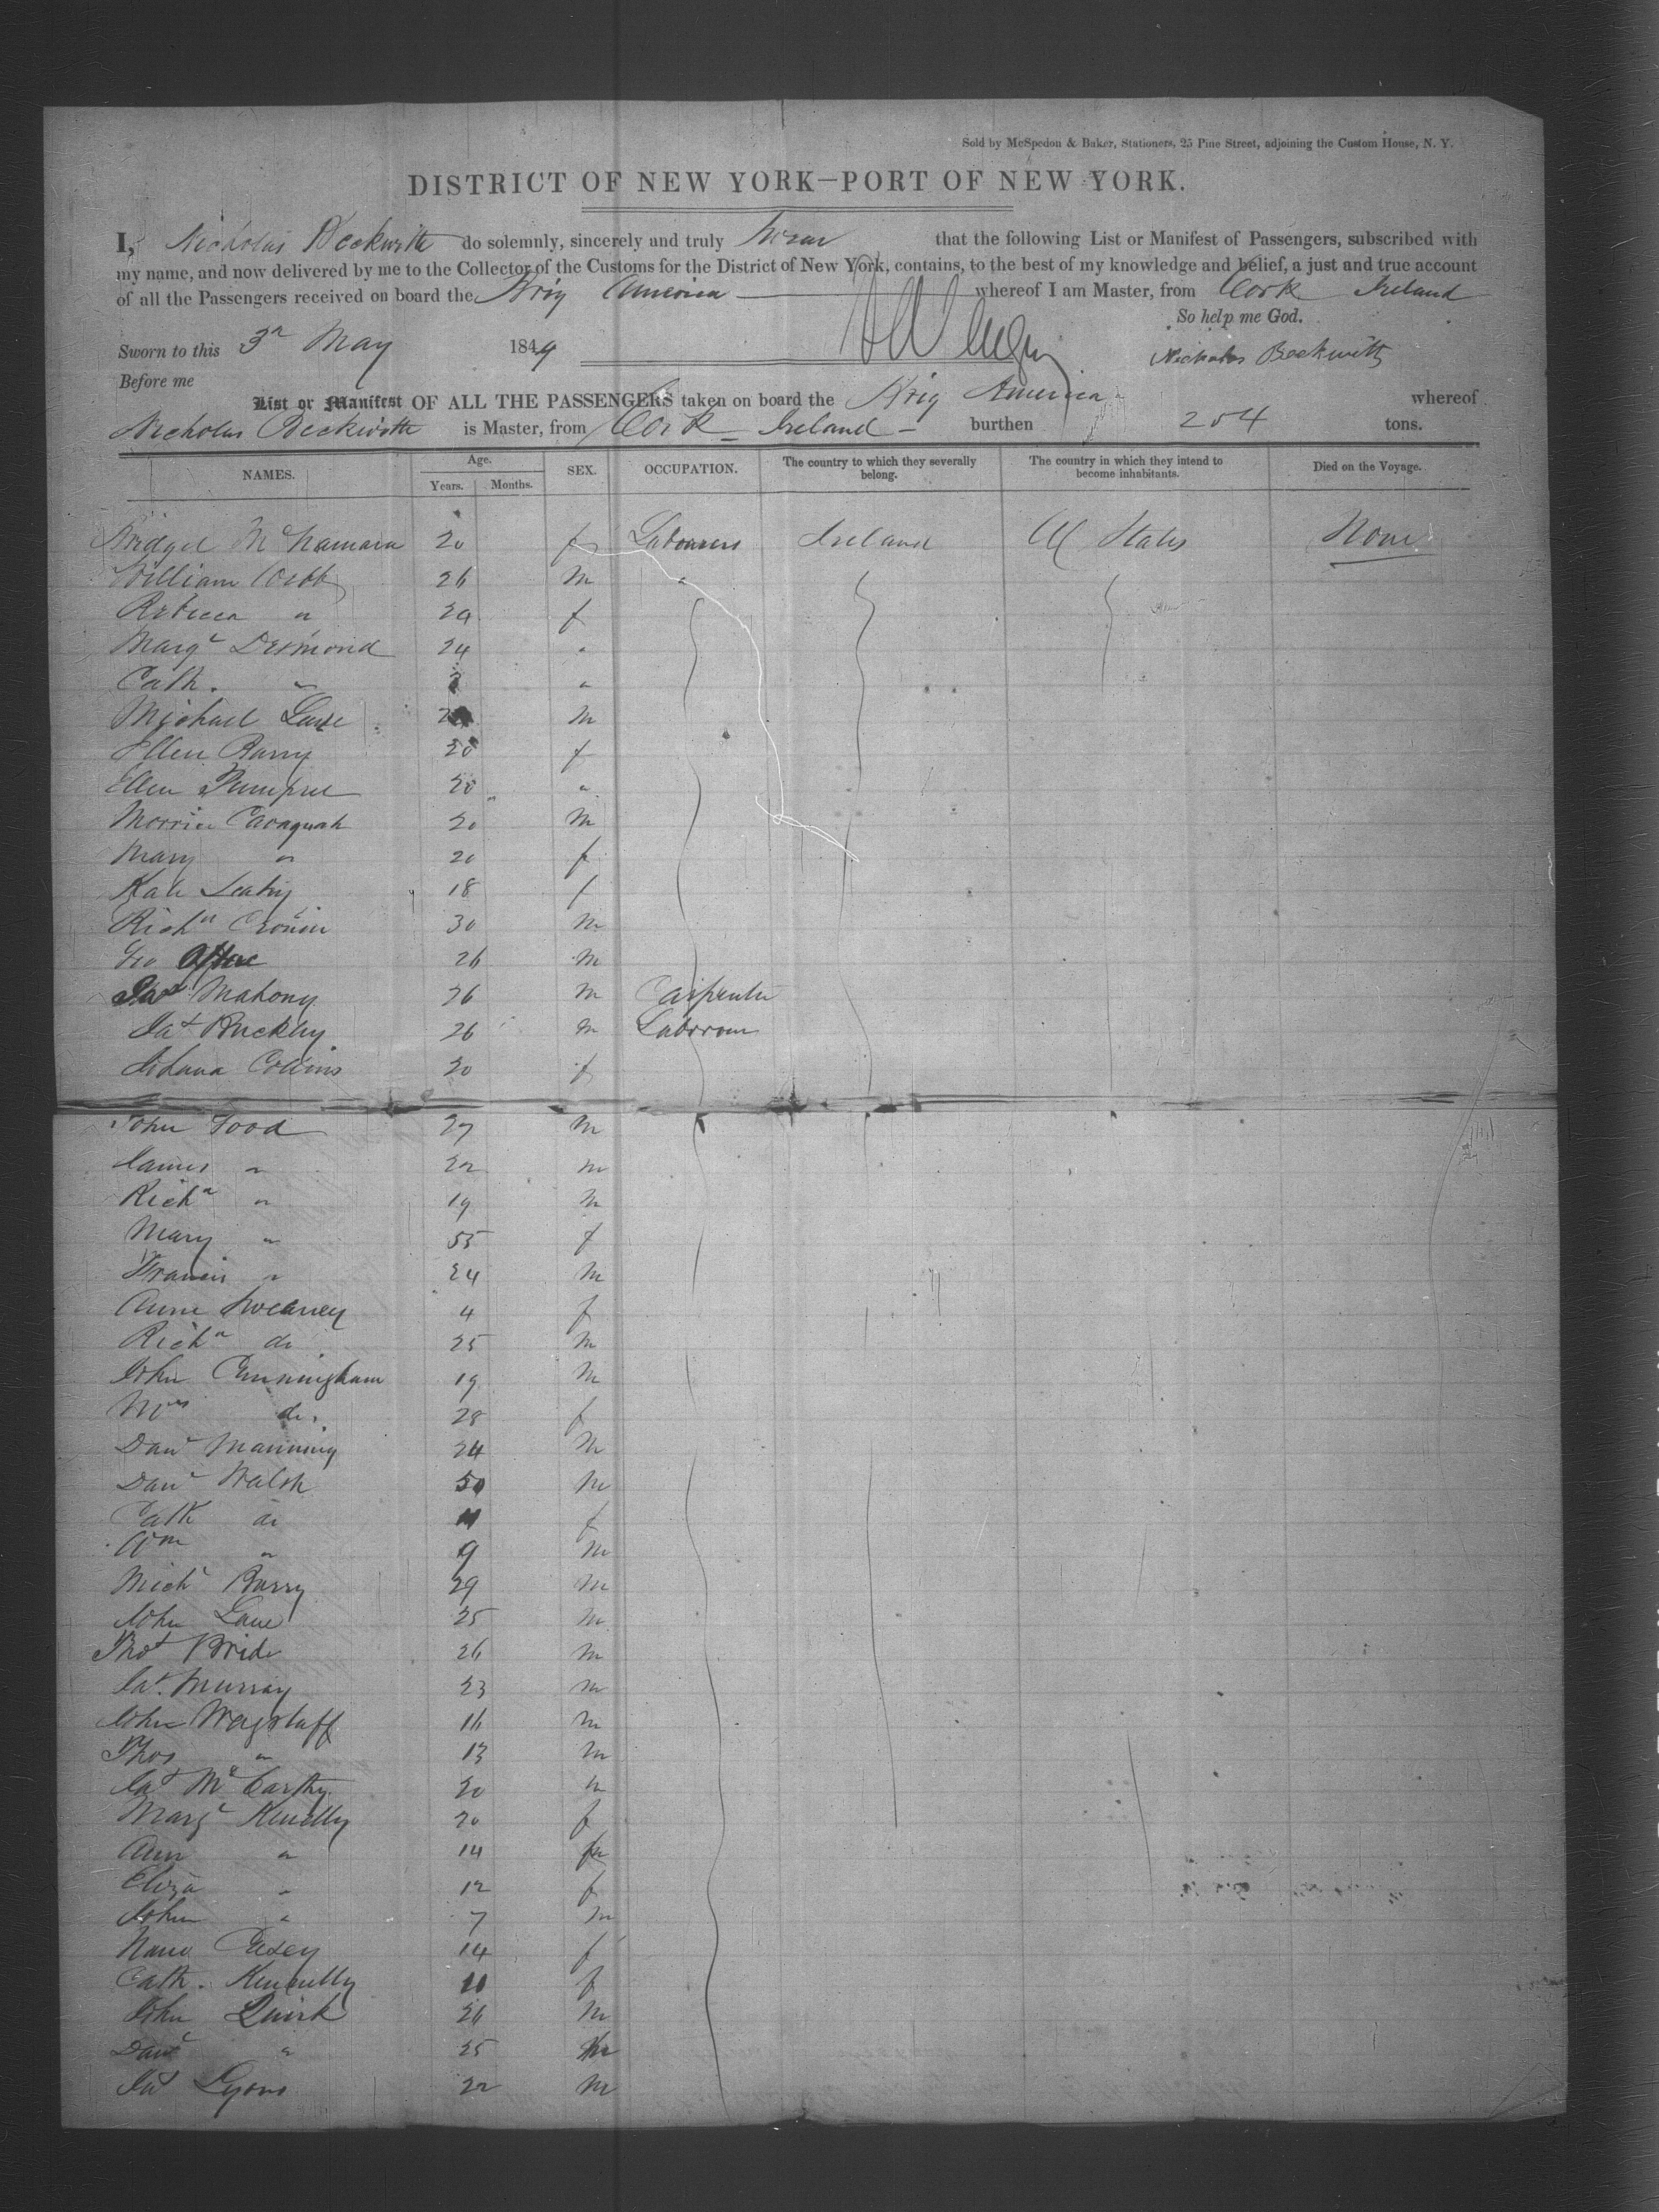 Sold by McSpedon & Baker, Stationers, 25 Pine Street, adjoining the Custom House, N. Y.
DISTRICT OF NEW YORK—PORT OF NEW YORK.
I, Nicholas Beckwith do solemnly, sincerely and truly Swear that the following List or Manifest of Passengers, subscribed with
my name, and now delivered by me to the Collector of the Customs for the District of New York, contains, to the best of my knowledge and belief, a just and true account
of all the Passengers received on board the Brig America whereof I am Master, from Cork Ireland
So help me God.
Sworn to this 3d May 1849 Nicholas Beckwith
Before me
List or Manifest OF ALL THE PASSENGERS taken on board the Brig America whereof
Nicholas Beckwith is Master, from Cork - Ireland - burthen 254 tons.
NAMES. Age. Years. Months. SEX. OCCUPATION. The country to which they severally belong. The country in which they intend to become inhabitants. Died on the Voyage.
Bridget McNamara 20 f Labourers Ireland U States None
William Webb 26 m "
Rebecca " 24 f
Margt Desmond 24 "
Cath. " "
Michael Lane m
Ellen Barry 20 f
Ellen 20 "
Morris Cavagnah 20 m
Mary " 20 f
Kate Leahy 18 f
Richd Cronin 30 m
Geo 26 m
Jas Mahony 26 m Carpenter
Jas Buckley 26 m Labourer
Collins 20 f
John Good 27 m
James " 22 m
Richd " 19 m
Mary " 55 f
Francis " 24 m
Anne Sweaney 4 f
Richd do 25 m
John Cunningham 19 m
Mrs do. 28 f
Danl Manning 24 m
Danl Walsh 50 m
Cath do f
Wm " 9 m
Michl Barry 29 m
John Lane 25 m
Thos Bride 26 m
Jas. Murray 23 m
John Wagstaff 16 m
Thos " 13 m
Jas McCarthy 20 m
Margt Kenelly 20 f
Ann " 14 f
Eliza " 12 f
John " 7 m
Nano Casey 14 f
Cath. Kennelly 11 f
John Quirk 26 m
Danl " 25 m
Jas Lyons 22 m